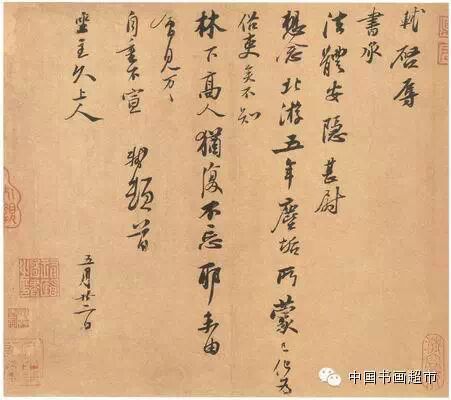 軾啓辱
書承
法體安隱甚慰
想念北游五年塵垢所蒙已化爲
俗吏矣不知
林下高人猶復不忘耶未由
會見万万
自重不宣 軾頓首
坐主久上人
五月廿二日
中国书画超市